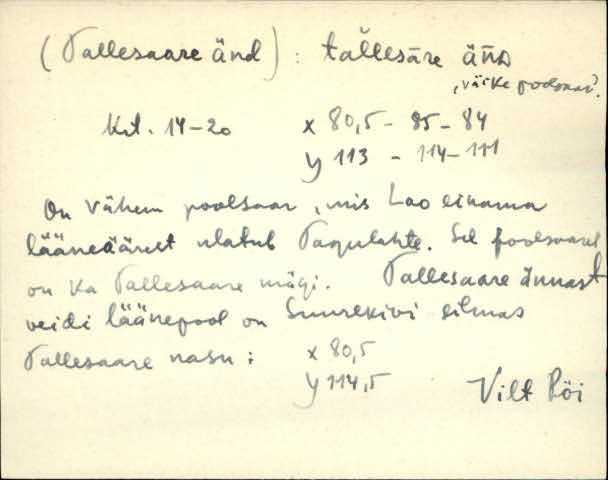 (Tallesaare änd) : tallesāre äńᴅ
"väike poolsaar".
Krt. 14-20 x 80,5 - 85 - 84
y 113 - 114 - 111
On vähem poolsaar, mis Lao einama
lääneäärest ulatub Tagulahte. Sel poolsaarel
on ka Tallesaare mägi. Tallesaare ännast
veidi läänepool on Suurekivi silmas
Tallesaare nasu : x 80,5
y 114,5
Vilt